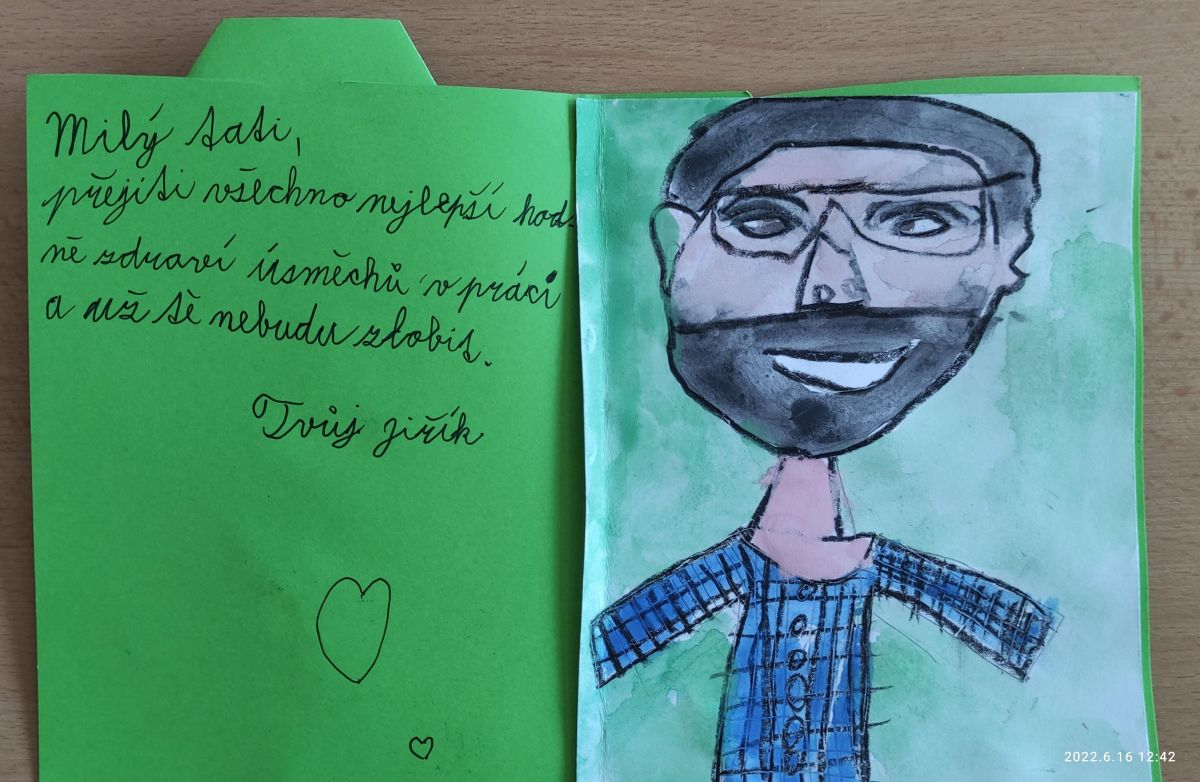 Milý tati,
přejiti všechno nejlepší hod-
ně zdraví úsměchů v práci
a už tě nebudu zlobit.
Tvůj jiřík
2022.6.16 12:42